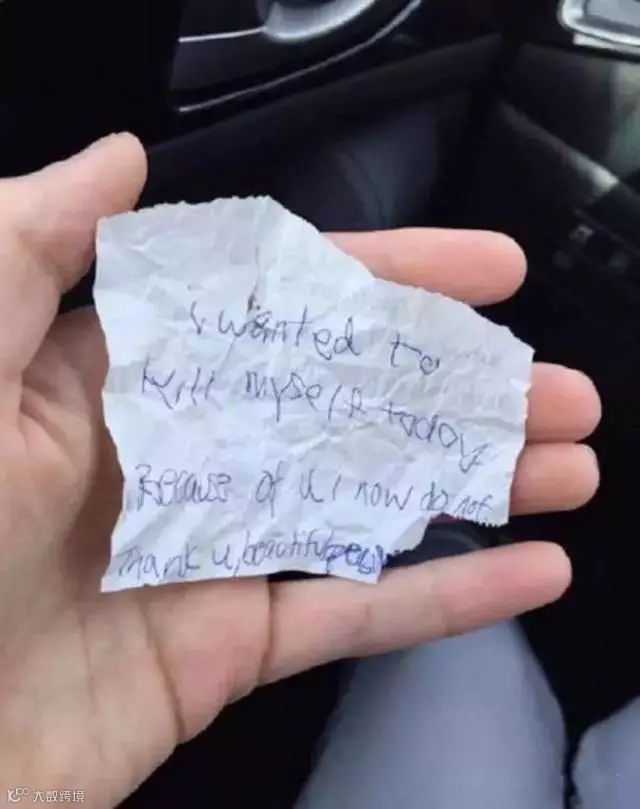 I wanted to
kill myself today
Because of u I now do not.
Thank u, beautiful
大数跨境